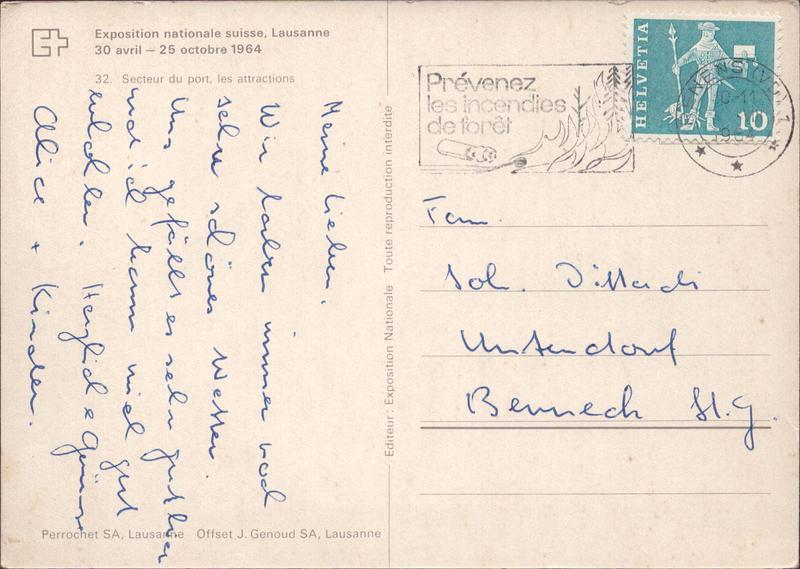 Exposition nationale suisse, Lausanne
30 avril – 25 octobre 1964
32. Secteur du port, les attractions
Meine Lieben,
Wir haben immer noch
sehr schönes Wetter.
Uns gefällt es sehr gut hier
und ich kann mich gut
erholen. Herzliche Grüsse
Alice + Kinder.
Perrochet SA, Lausanne Offset J. Genoud SA, Lausanne
Editeur: Exposition Nationale Toute reproduction interdite
Prévenez
les incendies
de forêt
HELVETIA
10
Fam.
Joh.
Unterdorf
Berneck St. G.